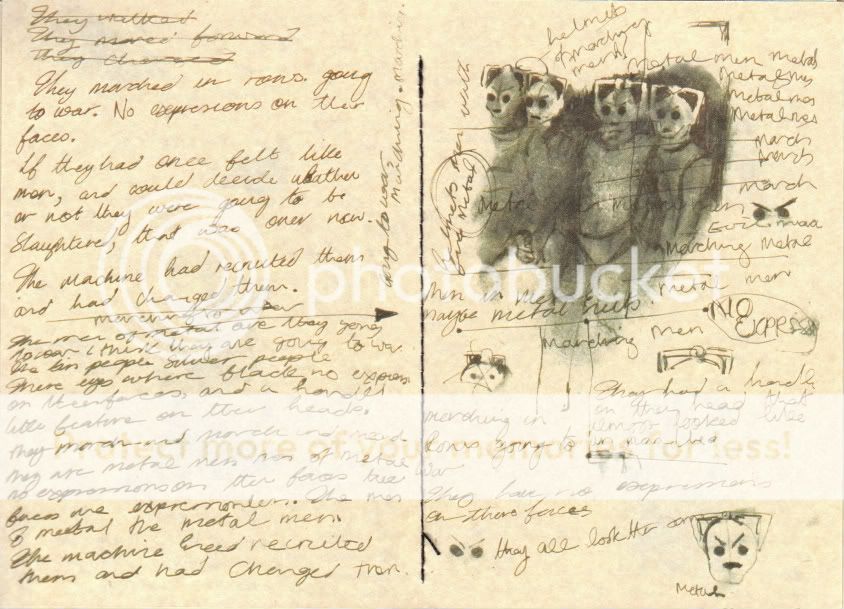 They walked
They moved forward
They changed
They marched in rows. going
to war. No expressions on their
faces.
If they had once felt like
men, and could decide whether
or not they were going to be
slaughtered, that was over now.
The machine had recruited them
and had changed them.
marching to war
The men of metal are they going
to war i think they are going to war
the tin people silver people
There eyes where black no express
on their faces, and a handle
little feature on their heads.
they march and march and march.
they are metal men men of metal
no expressions on their faces
faces are expressionless. The men
metal the metal men.
The machine had recruited
them and had changed them.
going to war?
marching. marching. marching.
helmets
of marching
men
Metal men metal
Metal men
Metal men
Metal men
march
march
march
Metal men
Evil
Marching Metal
metal men
Men in metal suits.
maybe metal suits?
NO
EXPRESS
marching men
They had a handle
on they head that
almost looked like
marching in
rows going to
war
They have no expressions
on there faces
they all look the same
Metal
photobucket
Protect more of your memories for less!